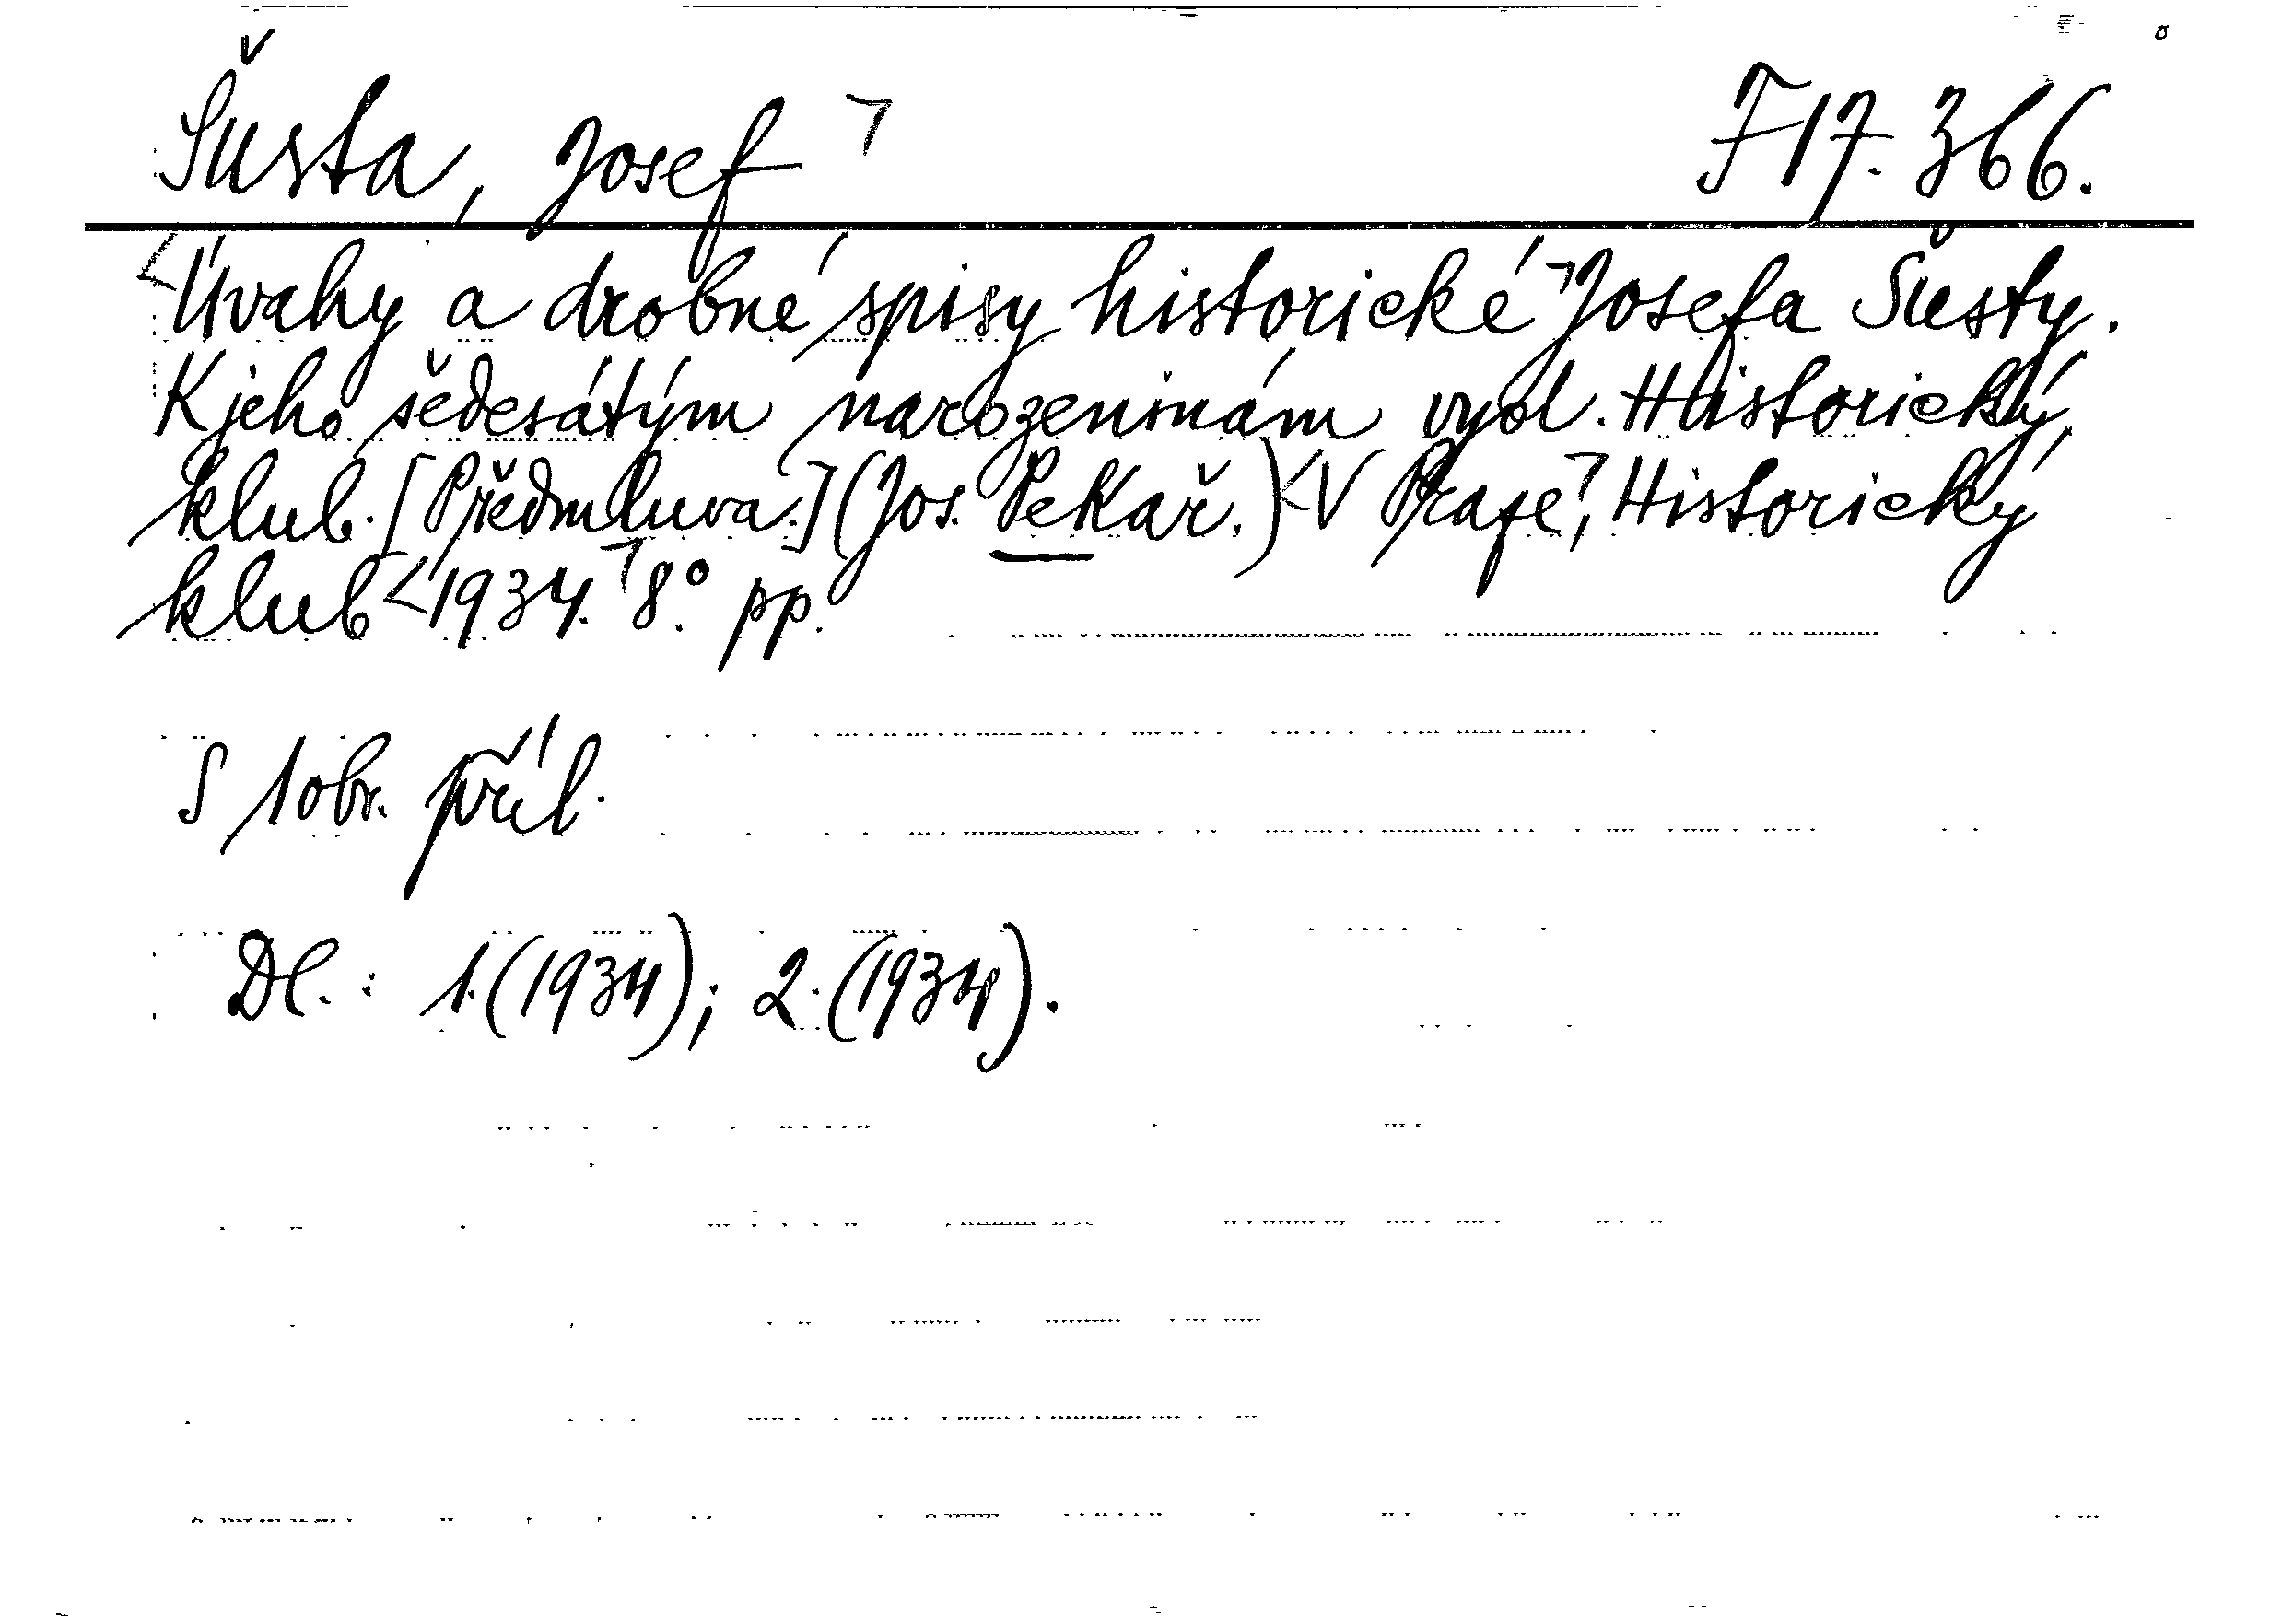 Šusta, Josef ┐ F 17.366.
<Úvahy a drobné spisy historické ┐ Josefa Šusty.
K jeho šedesátým narozeninám vyd. Historický
klub. [Předmluva.] (Jos. Pekař.) <V Praze ┐, Historický
klub <1934. ┐ 8°. pp.
S 1 obr. příl.
Dl. : 1. (1934); 2. (1934).